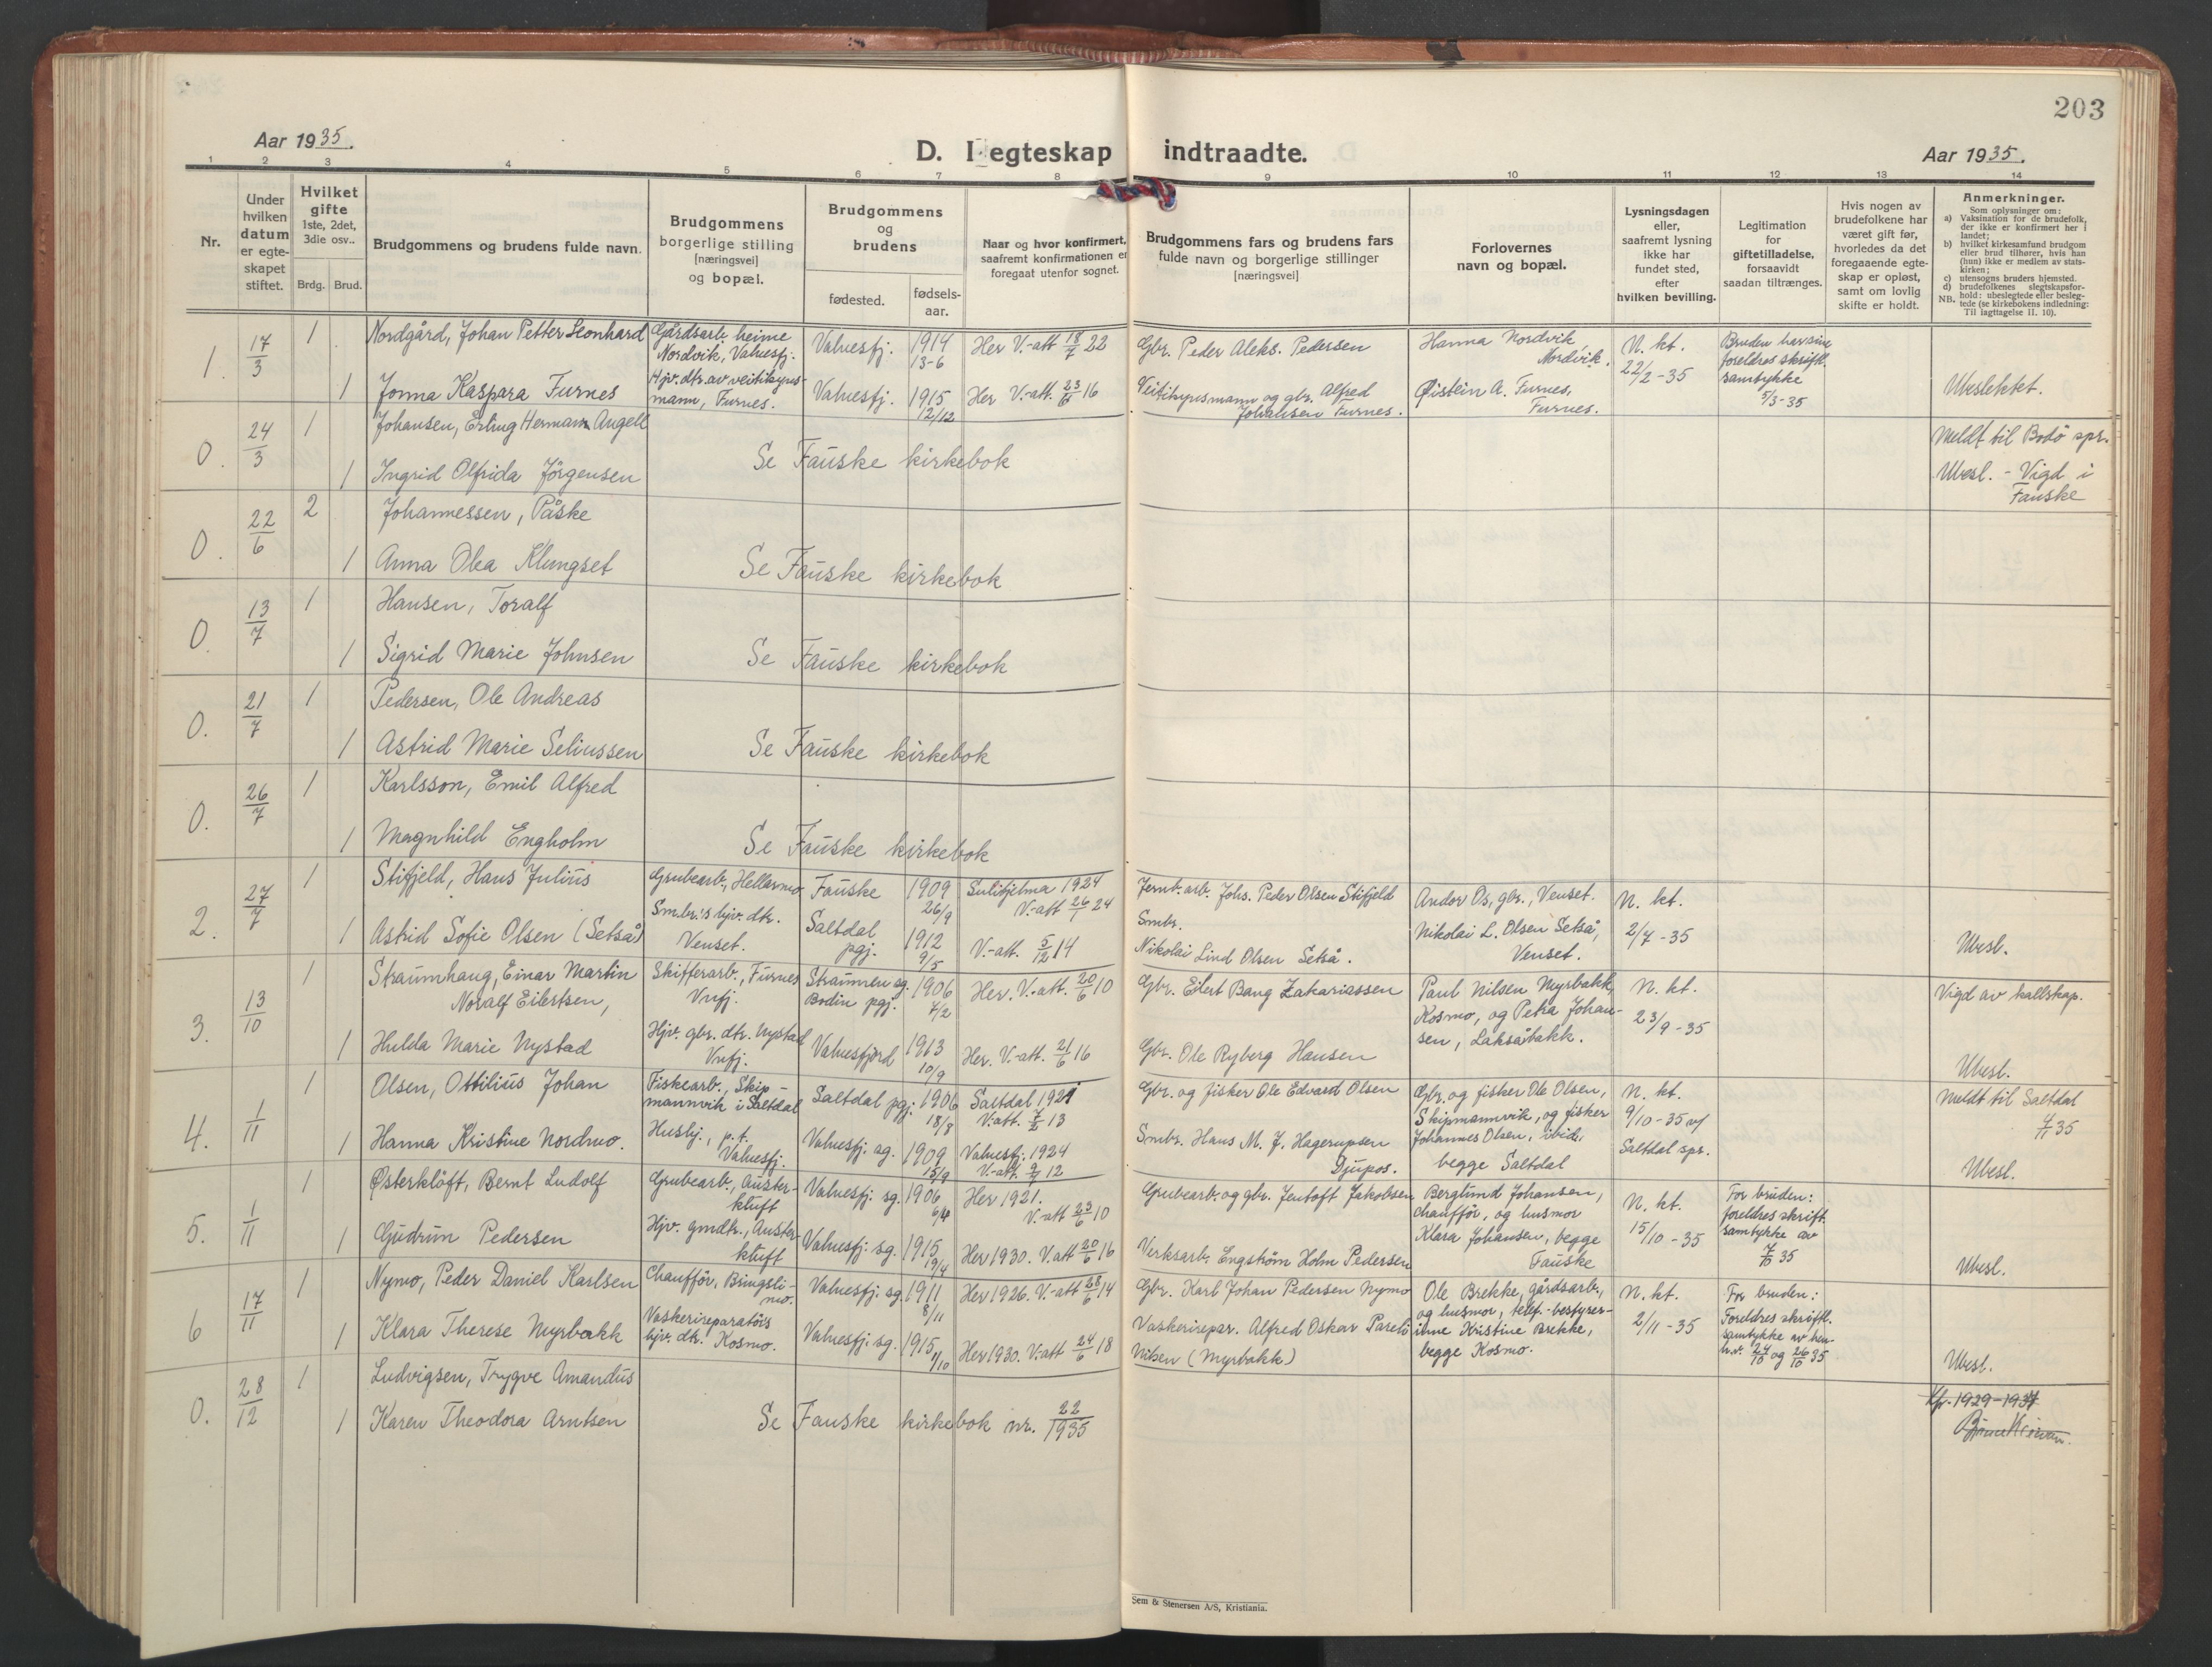 203
Aar 1935.
D. I egteskap indtraadte.
Aar 1935.
1 2 3 4 5 6 7 8 9 10 11 12 13 14
Nr.
Under hvilken datum er egte-skapet stiftet.
Hvilket gifte 1ste, 2det, 3die osv..
Brdg. Brud.
Brudgommens og brudens fulde navn.
Brudgommens borgerlige stilling [næringsvei] og bopæl.
Brudgommens og brudens
fødested.
fødsels-aar.
Naar og hvor konfirmert, saafremt konfirmationen er foregaat utenfor sognet.
Brudgommens fars og brudens fars fulde navn og borgerlige stillinger [næringsvei]
Forlovernes navn og bopæl.
Lysningsdagen eller, saafremt lysning ikke har fundet sted, efter hvilken bevilling.
Legitimation for giftetilladelse, forsaavidt saadan tiltrænges.
Hvis nogen av brudefolkene har været gift før, hvorledes da det foregaaende egte-skap er opløst, samt om lovlig skifte er holdt.
Anmerkninger.
Som oplysninger om:
a) Vaksination for de brudefolk, der ikke er konfirmert her i landet;
b) hvilket kirkesamfund brudgom eller brud tilhører, hvis han (hun) ikke er medlem av stats-kirken;
c) utensogns bruders hjemsted.
d) brudefolkenes slegtskapsfor-hold: ubeslegtede eller besleg-tede (se kirkebokens indledning:
NB. Til iagttagelse II. 10).
1. 17/3 1 Nordgård, Johan Petter Leonhard Gårdsarb. heime Nordvik, Valnesfj. Valnesfj. 1914 13-6 Her V.-att 18/7 22 Gbr. Peder Aleks. Pedersen Hanna Nordvik, Nordvik. N. kt. 22/2-35 Bruden har sine foreldres skriftl. samtykke 5/3-35
1 Jonna Kaspara Furnes Hjv. dtr. av veitikyns-mann, Furnes. Valnesfj. 1915 12/12 Her V.-att. 23/6 16 Veitikynsmann og gbr. Alfred Johansen Furnes. Øistein A. Furnes, Furnes. Ubeslektet.
0. 24/3 1 Johansen, Erling Hermann Angell Meldt til Bodö spr.
1 Ingrid Olfrida Jörgensen Se Fauske kirkebok Ubesl. - Vigd i Fauske
0. 22/6 2 Johannessen, Påske
1 Anna Olea Klungset Se Fauske kirkebok
0. 13/7 1 Hansen, Toralf
1 Sigrid Marie Johnsen Se Fauske kirkebok
0. 21/7 1 Pedersen, Ole Andreas
1 Astrid Marie Seliussen Se Fauske kirkebok
0. 26/7 1 Karlsson, Emil Alfred
1 Magnhild Engholm Se Fauske kirkebok
2. 27/7 1 Stifjeld, Hans Julius Grubearb., Hellarmo Fauske 1909 26/9 Sulitjelma 1924 V.-att 26/1 24 Jernb.arb. Johs. Peder Olsen Stifjeld Andor Os, gbr., Venset. N. kt. 2/7-35
1 Astrid Sofie Olsen (Setså) Smbr.'s hjv. dtr. Venset. Saltdal pgj. 1912 9/5 V.-att. 5/12 14 Smbr. Nikolai Lind Olsen Setså. Nikolai L. Olsen Setså, Venset. Ubesl.
3. 13/10 1 Straumhaug, Einar Martin Noralf Eilertsen, Skifferarb., Furnes Vnfj. Straumen sg. Bodin pgj. 1906 7/2 Her. V.-att. 20/6 10 Gbr. Eilert Bang Zakariassen Paul Nilsen Myrbakk, Kosmo, og Petra Johan-sen, Laksåbakk. N. kt. 23/9-35 Vigd av kallskap.
1 Hulda Marie Nystad Hjv. gbr. dtr. Nystad Vnfj. Valnesfjord 1913 10/9 Her. V.-att. 21/6 16 Gbr. Ole Ryberg Hansen Ubesl.
4. 1/11 1 Olsen, Ottilius Johan Fiskearb., Skip-mannvik i Saltdal Saltdal pgj. 1906 18/8 Saltdal 1921 V.att. 7/2 13 Gbr. og fisker Ole Edvard Olsen Gbr. og fisker Ole Olsen, Skipmannvik, og fisker Johannes Olsen, ibid., begge Saltdal N. kt. 9/10-35 v/ Saltdal spr. Meldt til Saltdal 4/11 35
1 Hanna Kristine Nordmo. Hushj., p.t. Valnesfj. Valnesfj. sg. 1909 15/9 Valnesfj. 1924 Smbr. Hans M. J. Hagerupsen Djupos. Ubesl.
5. 1/11 1 Østerklöft, Bernt Ludolf Grubearb., Auster-kluft Valnesfj. sg. 1906 6/4 Her 1921. V.-att 23/6 10 Grubearb. og gbr. Jentoft Jakobsen Berglund Johansen, chaufför, og husmor Klara Johansen, begge Fauske N. kt. 15/10-35 For bruden: foreldres skriftl. samtykke av 7/10 35
1 Gudrun Pedersen Hjv. gmdtr., Auster-kluft Valnesfj. sg. 1915 19/4 Her 1930. V.att 20/6 16 Verksarb. Engström Holm Pedersen Ubesl.
6 17/11 1 Nymo, Peder Daniel Karlsen Chaufför, Bringsli-mo. Valnesfj. sg. 1911 8/11 Her 1926. V.-att 28/6 14 Gbr. Karl Johan Pedersen Nymo Ole Brekke, gårdsarb., og husmor, telef.-bestyrer-inne Kristine Brekke, begge Kosmo. N. kt. 2/11-35 For bruden: Foreldres skriftl. samtykke av hen-h.v. 24/10 og 26/10 35
1 Klara Therese Myrbakk Vaskerireparatörs hjv. dtr. Kosmo. Valnesfj. sg. 1915 1/10 Her 1930. V.-att 24/6 18 Vaskerirepar. Alfred Oskar Pareli Nilsen (Myrbakk) Ubesl.
0. 28/12 1 Ludvigsen, Trygve Amandus Kfr. 1929-1934
1 Karen Theodora Arntsen Se Fauske kirkebok nr. 22/1935
Sem & Stenersen A/S, Kristiania.